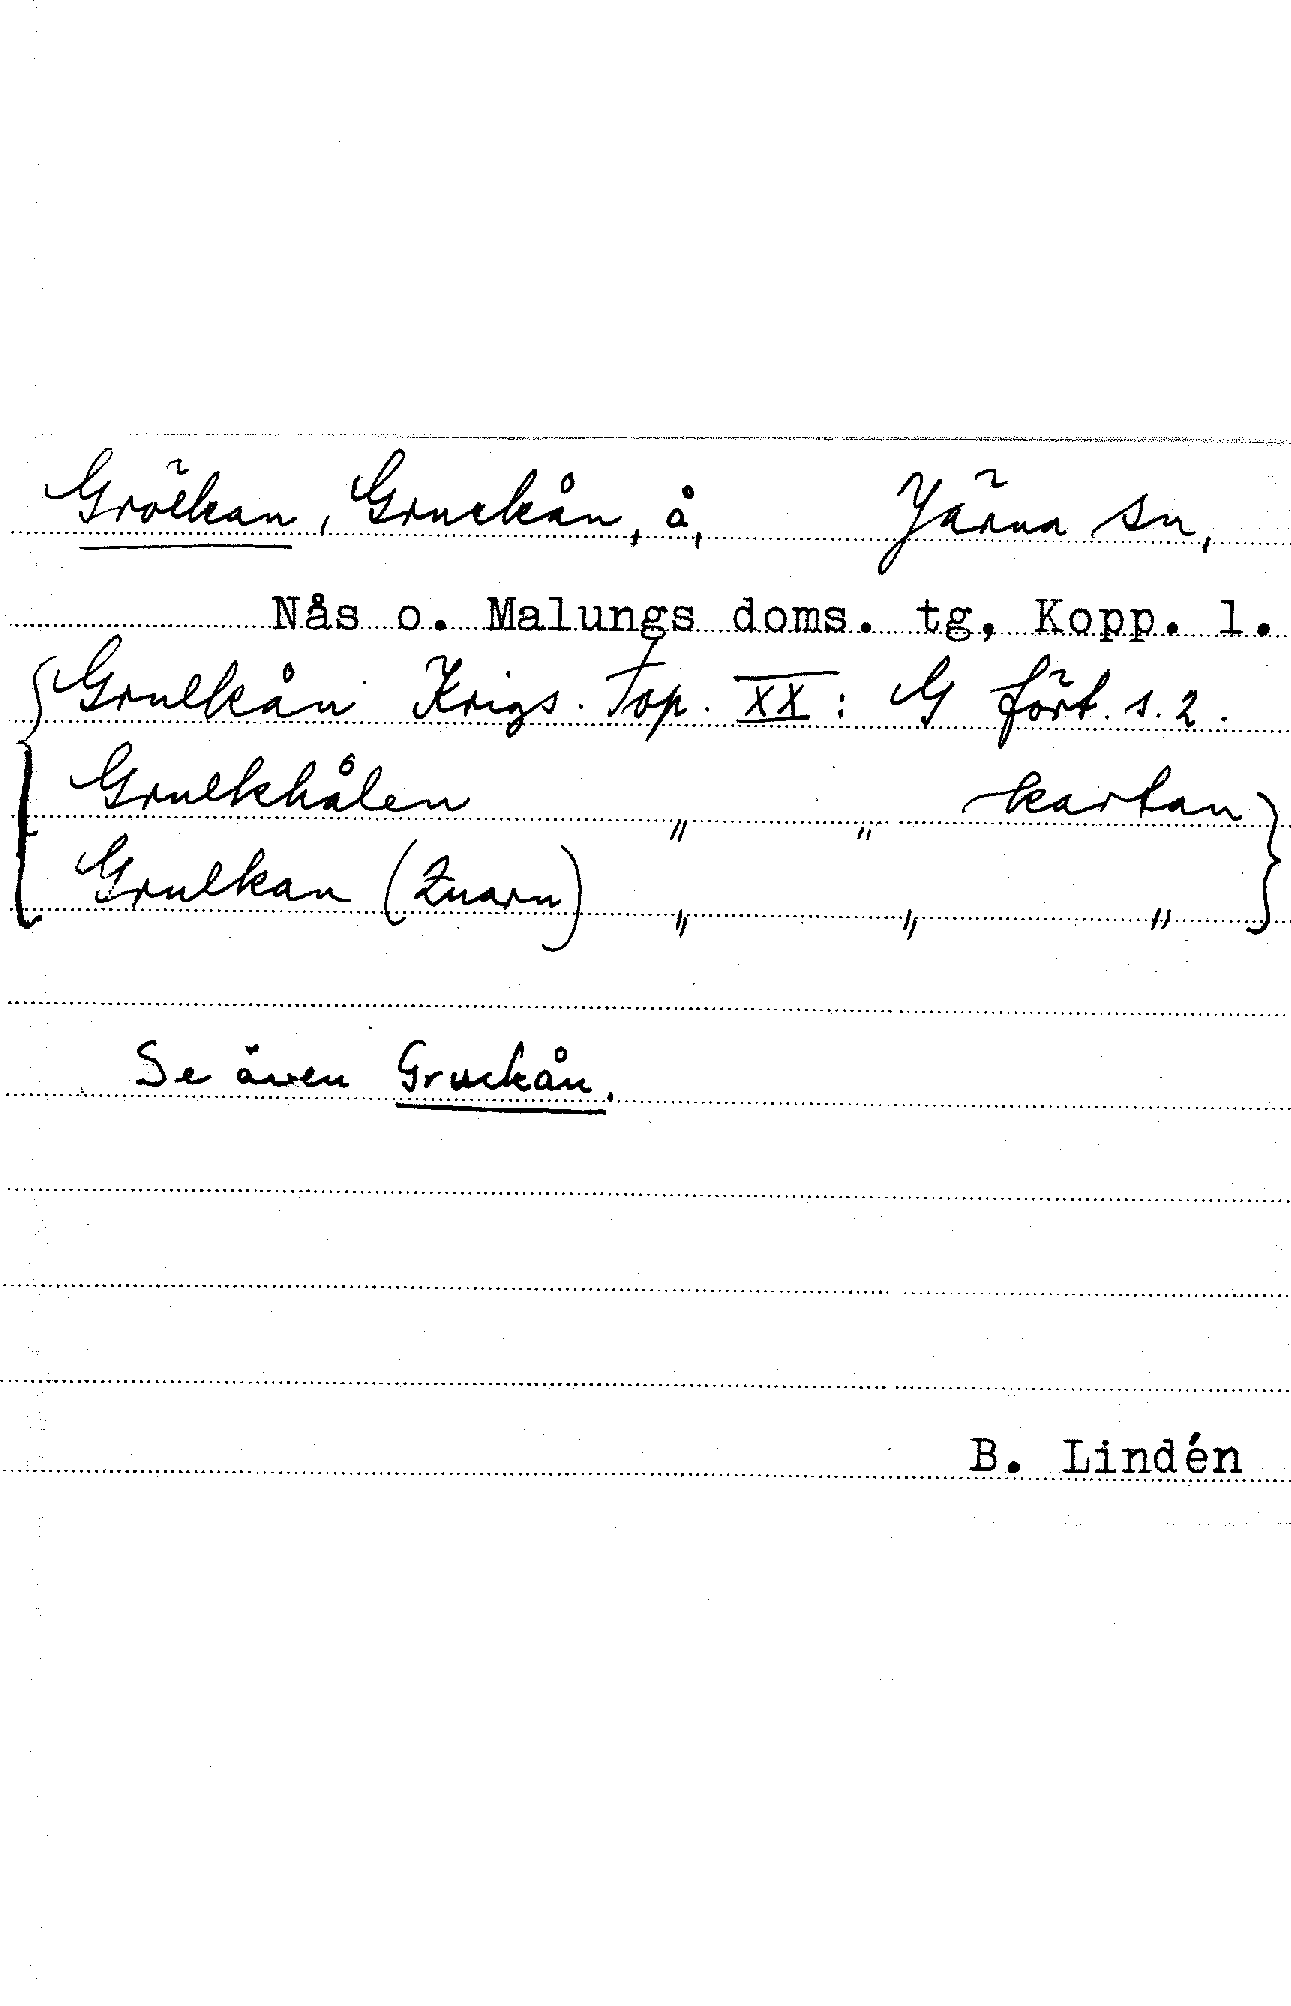 Gröckan, Gruckån, å, Järna sn,
Nås o. Malungs doms. tg, Kopp. l.
Gruckån Krigs. Top. XX: G fört. s. 2.
Gruckhålen " " kartan
Gruckan (Kvarn) " " "
Se även Gruckån.
B. Lindén